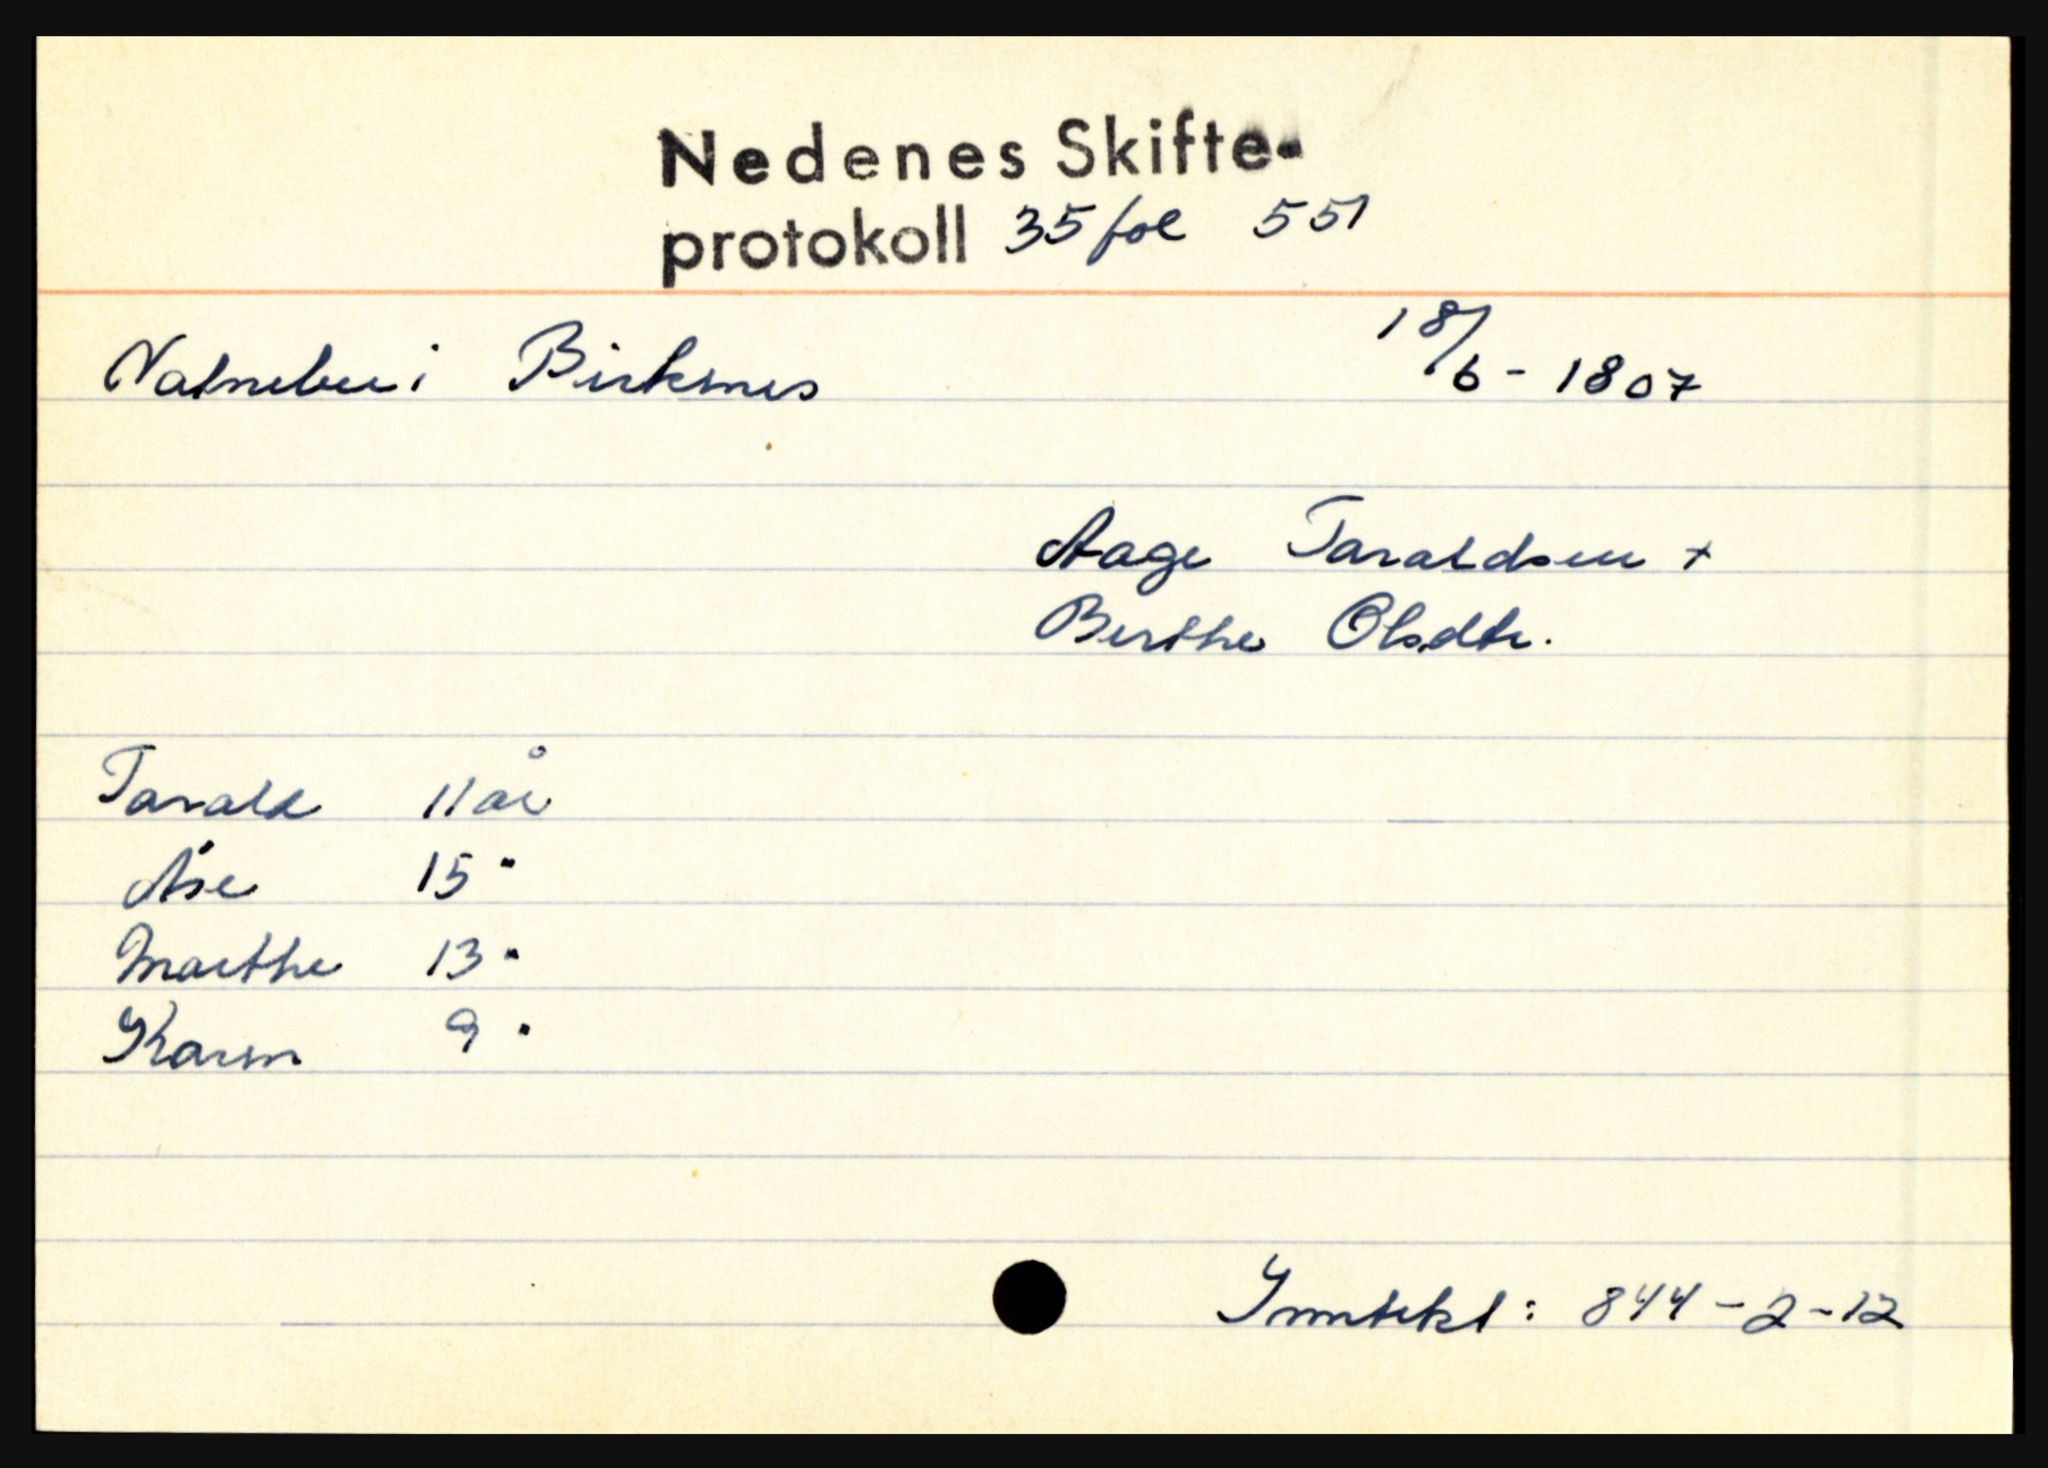 Nedenes Skifte-
protokoll 35 fol 551
Natnebu i Birkenes 18/6-1807
Aage Taraldsen +
Berthe Olsdtr.
Tarald 11 år
Åse 15 "
Marthe 13 "
Karen 9 "
Inntekt: 844-2-12